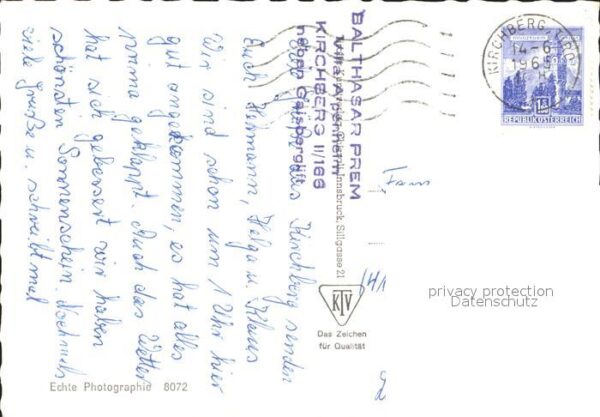 Liebe Grüße aus Kirchberg senden
Euch Hermann, Helga u. Klaus
Wir sind schon um 1 Uhr hier
gut angekommen, es hat alles
prima geklappt. Auch das Wetter
hat sich gebessert wir haben
schönsten Sonnenschein. Nochmals
viele Grüße u. schreibt mal
BALTHASAR PREM
Villa Alpenheim
KIRCHBERG II/166
neben Gaisberglift
Innsbruck, Sillgasse 21
KIRCHBERG
14-6
1965
REPUBLIK ÖSTERREICH
KTV
Das Zeichen
für Qualität
privacy protection
Datenschutz
Echte Photographie 8072